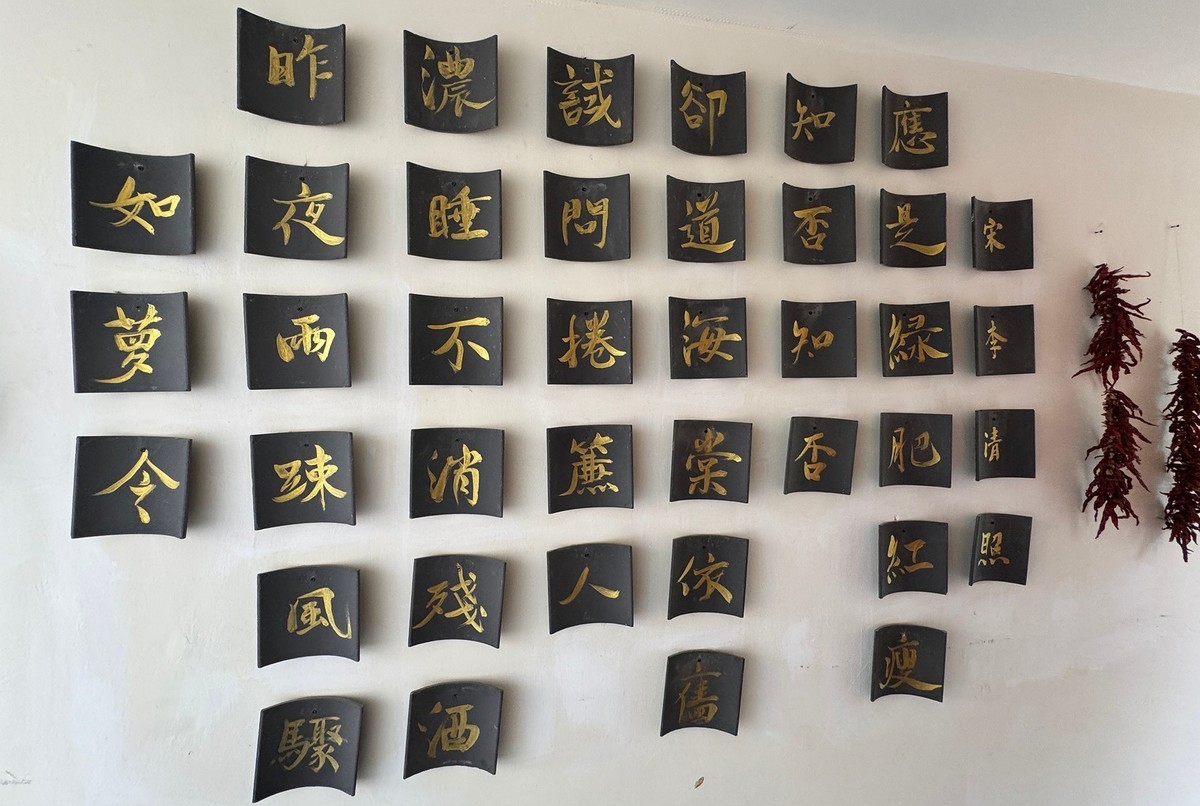 如夢令
昨夜雨踈風驟
濃睡不消殘酒
試問捲簾人
卻道海棠依舊
知否知否
應是綠肥紅瘦
宋李清照